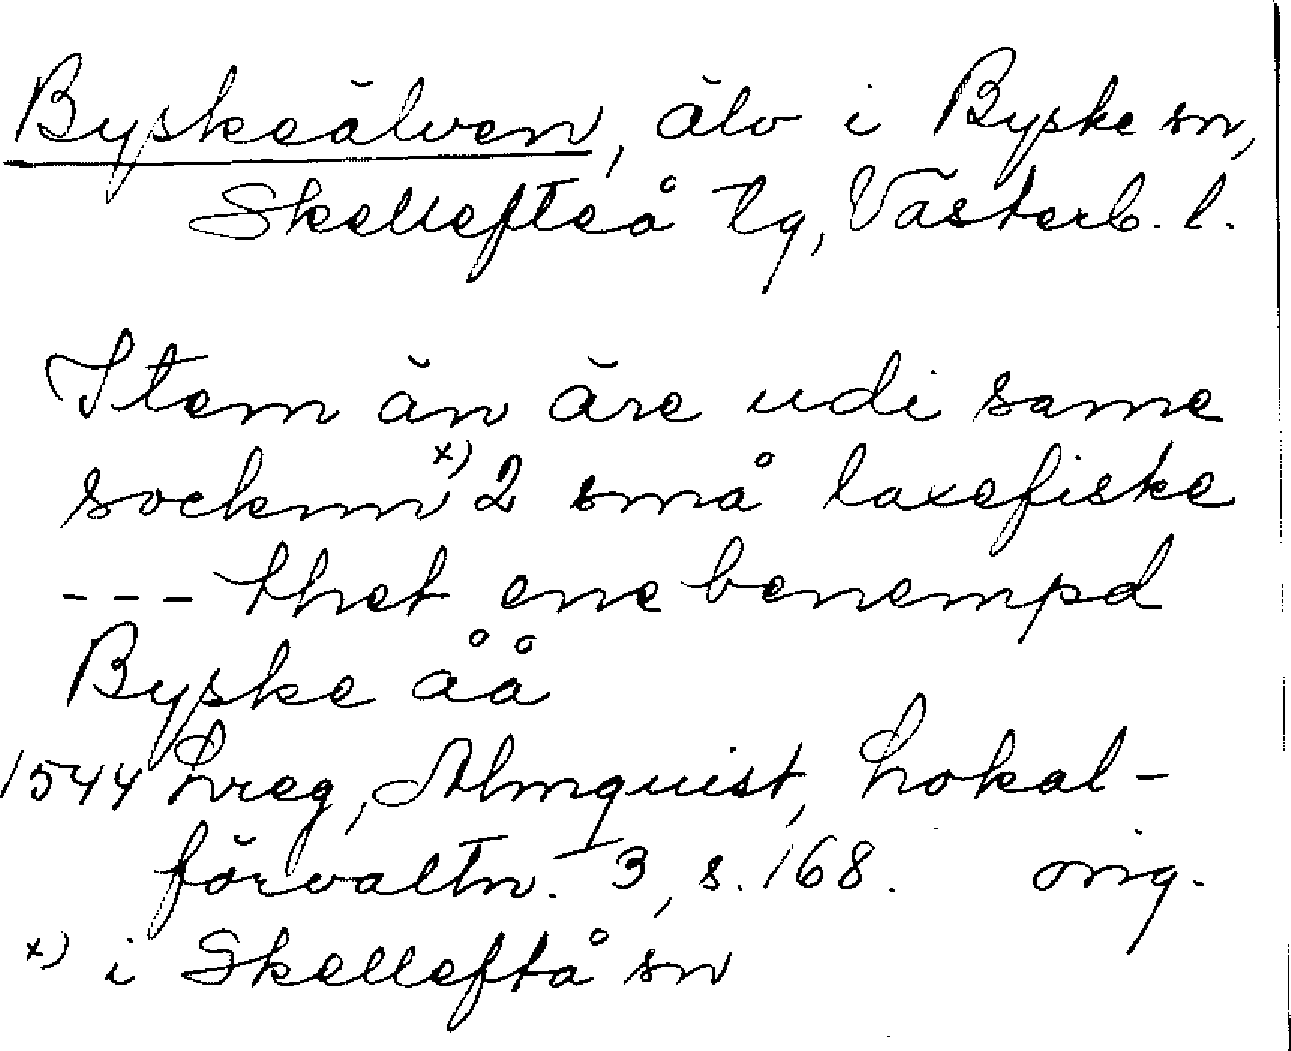 Byskeälven, älv i Byske sn,
Skellefteå tg, Västerb. l.
Item än äre udi same
socknn x) 2 små laxefiske
--- thet ene benempd
Byske åå
1544 Lreg, Almquist, Lokal-
förvaltn. 3, s. 168. orig.
x) i Skelleftå sn